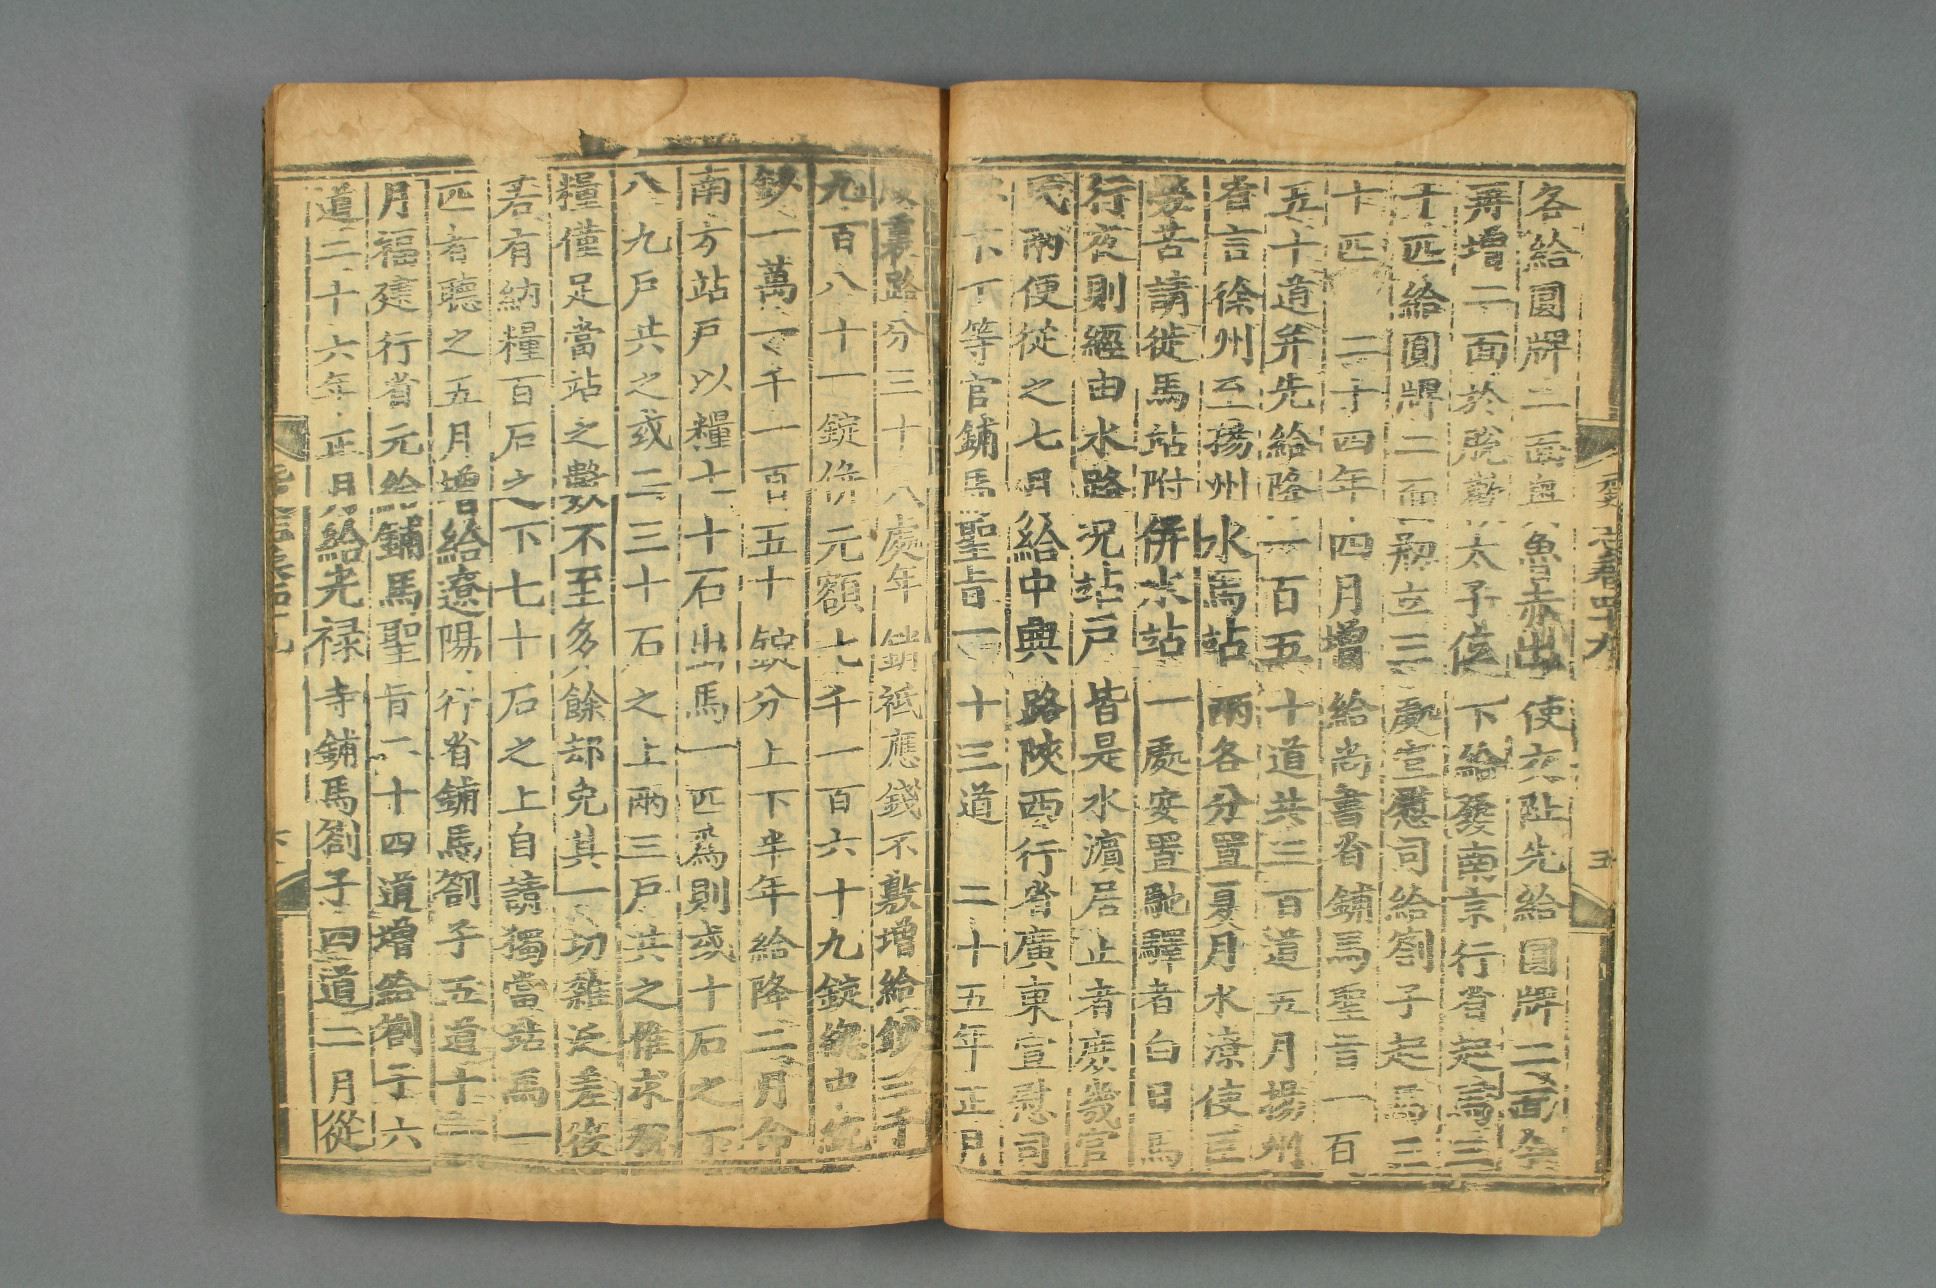 各給圓牌二面奧魯赤出使交趾先給圓牌二面今
再增二面於脫歡太子位下給發南京行省起馬三
十匹給圓牌二面刱立三處宣慰司給劄子起馬三
十匹　二十四年四月增給尚書省鋪馬聖旨一百
五十道并先給降一百五十道共三百道五月揚州
省言徐州至揚州水馬站兩各分置夏月水潦使臣
勞苦請徙馬站附併水站一處安置馳驛者白日馬
行夜則經由水路況站戶皆是水濱居止者庶幾官
民兩便從之七月給中興路陝西行省廣東宣慰司
沙不丁等官鋪馬聖旨一十三道　二十五年正月
腹裏路分三十八處年銷祗應錢不敷增給鈔三千
九百八十一錠併元額七千一百六十九錠總中統
鈔一萬一千一百五十錠分上下半年給降二月命
南方站戶以糧七十石出馬一匹爲則或十石之下
八九戶共之或二三十石之上兩三戶共之惟求稅
糧僅足當站之數不至多餘却免其一切雜泛差役
若有納糧百石之下七十石之上自請獨當站馬一
匹者聽之五月增給遼陽行省鋪馬劄子五道十一
月福建行省元給鋪馬聖旨二十四道增給劄子六
道二十六年正月給光祿寺鋪馬劄子四道二月從